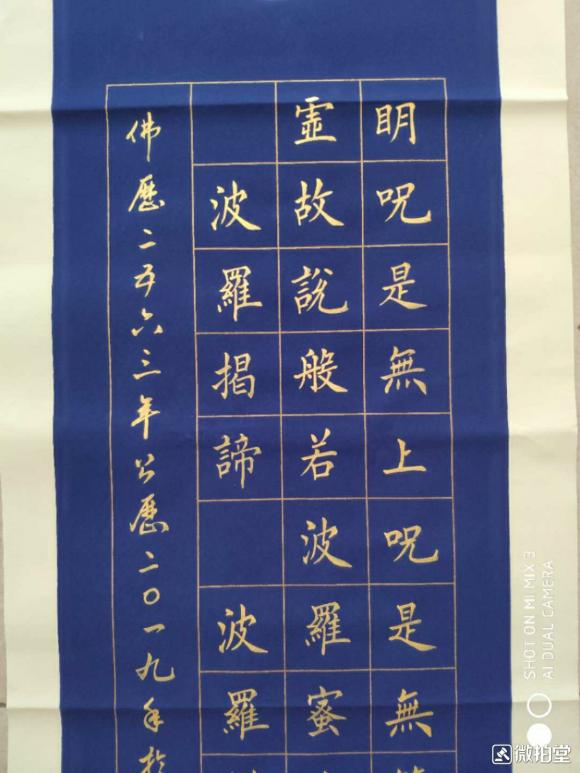 明呪是無上呪是無
虛故說般若波羅蜜
波羅揭諦 波羅
佛歷二五六三年公歷二〇一九年於
SHOT ON MI MIX 3
AI DUAL CAMERA
微拍堂